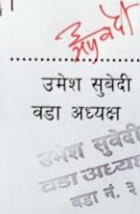 उमेश सुवेदी
वडा अध्यक्ष
उमेश सुवेदी
वडा अध्यक्ष
वडा नं. ३